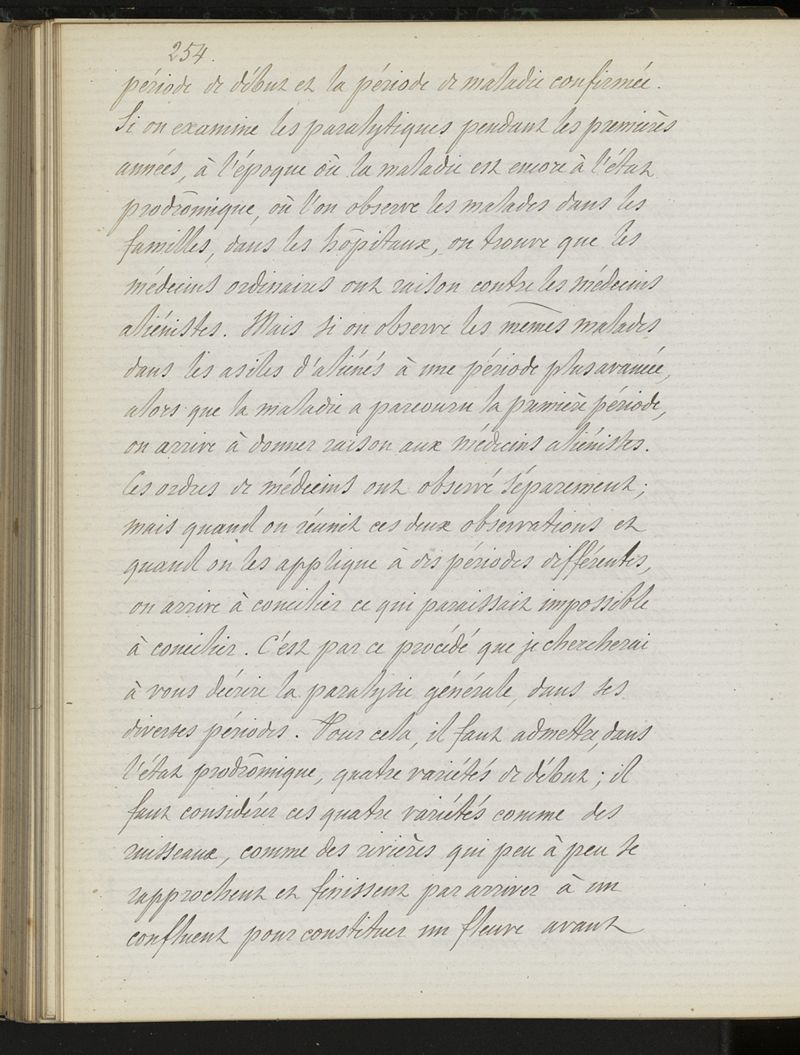 254.
période de début et la période de maladie confirmée.
Si on examine les paralytiques pendant les premières
années, à l'époque où la maladie est encore à l'état
prodrômique, où l'on observe les malades dans les
familles, dans les hôpitaux, on trouve que les
médecins ordinaires ont raison contre les médecins
aliénistes. Mais si on observe les mêmes malades
dans les asiles d'aliénés à une période plus avancée,
alors que la maladie a parcouru la première période,
on arrive à donner raison aux médecins aliénistes.
Ces ordres de médecins ont observé séparement ;
mais quand on réunit ces deux observations et
quand on les applique à des périodes différentes,
on arrive à concilier ce qui paraissait impossible
à concilier. C'est par ce procédé que je chercherai
à vous décrire la paralysie générale, dans ses
diverses périodes. Pour cela, il faut admettre, dans
l'état prodrômique, quatre variétés de début ; il
faut considérer ces quatre variétés comme des
ruisseaux, comme des rivières qui peu à peu se
rapprochent et finissent par arriver à un
confluent pour constituer un fleuve avant